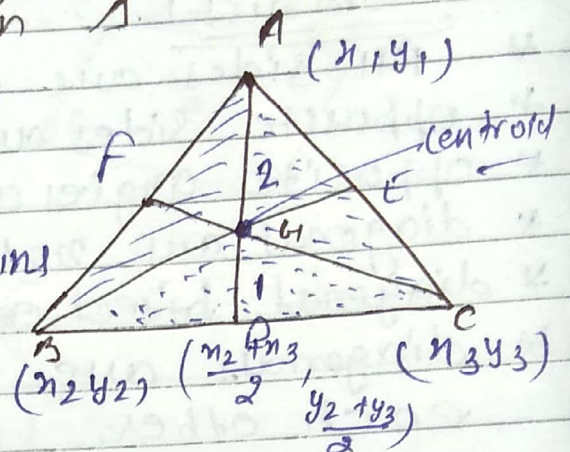 n Δ.
A
(x₁ y₁)
centroid
F
2
E
G
ins
1
B
D
C
(x₂ y₂)
(x₂+x₃/2, y₂+y₃/2)
(x₃ y₃)